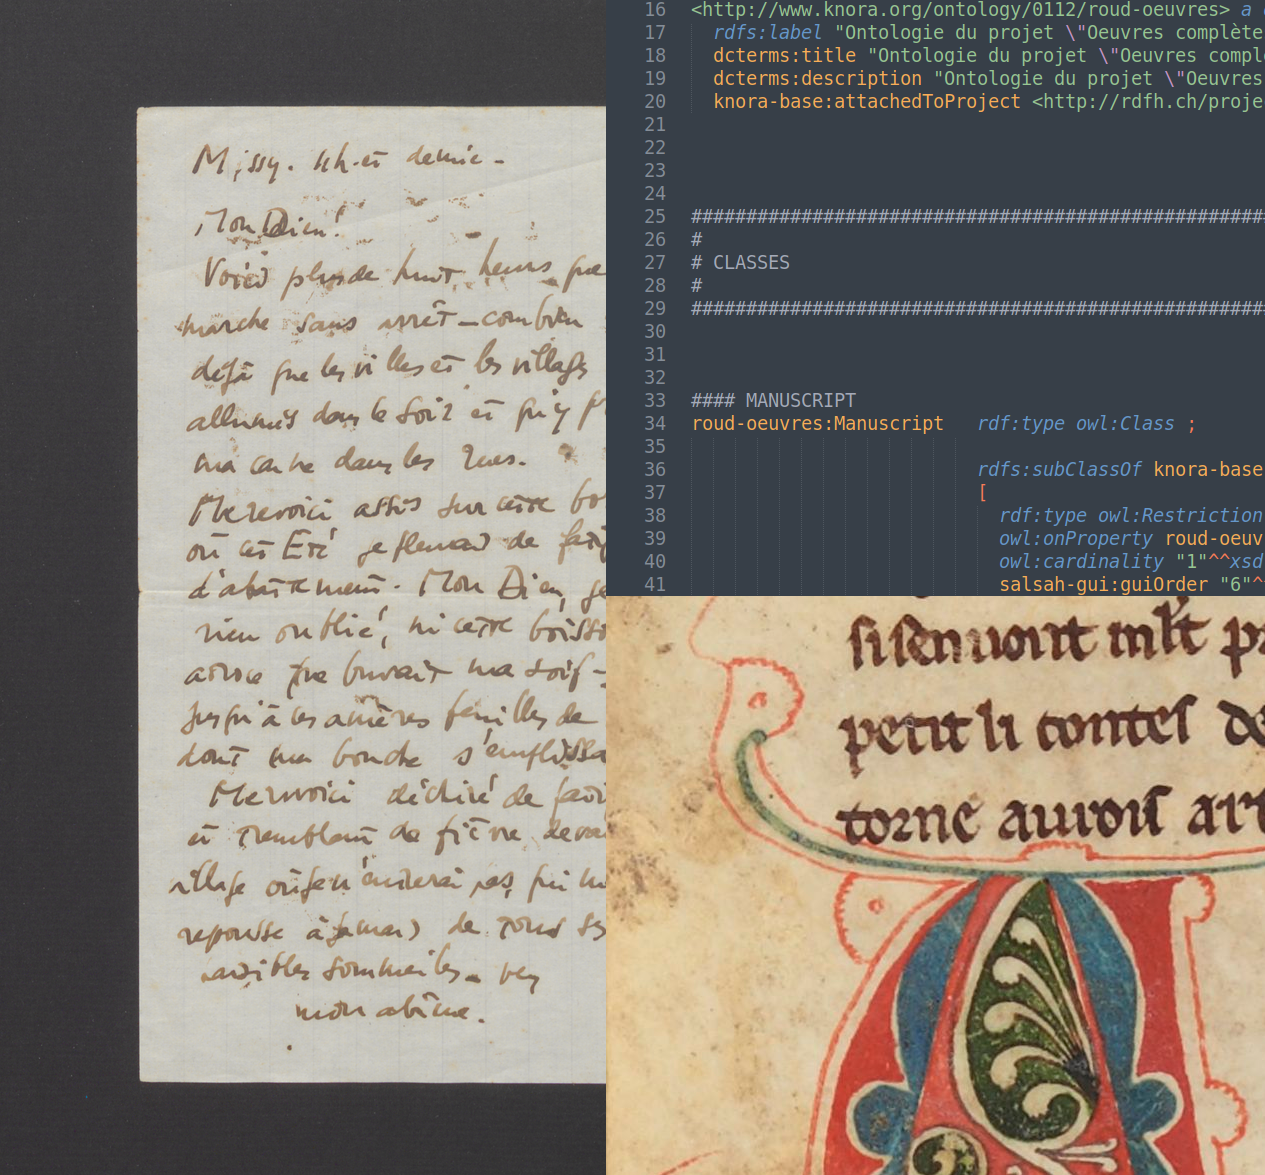 Missy. 4h. et demie -
Mon Dieu!
Voici plus de huit heures que
marche sans arrêt - combien
déjà que les villes et les villages
allumés dans le soir et qu'y
ma canne dans les rues.
Me revoici assis sur cette
où cet Eté je pleurais de
d'abattement. Mon Dieu, je
rien oublié, ni cette
atroce que buvait ma soif -
jusqu'à les amères feuilles de
dont ma bouche
Me revoici déchiré de
et tremblant de fièvre
village où je n'entrerai pas, qui
repousse à jamais de tous
paisibles sommeils
mon abîme.
16 <http://www.knora.org/ontology/0112/roud-oeuvres> a
17 rdfs:label "Ontologie du projet \"Oeuvres complète
18 dcterms:title "Ontologie du projet \"Oeuvres compl
19 dcterms:description "Ontologie du projet \"Oeuvres
20 knora-base:attachedToProject <http://rdfh.ch/proje
21
22
23
24
25 ####################################################
26 #
27 # CLASSES
28 #
29 ####################################################
30
31
32
33 #### MANUSCRIPT
34 roud-oeuvres:Manuscript rdf:type owl:Class ;
35
36 rdfs:subClassOf knora-base
37 [
38 rdf:type owl:Restriction
39 owl:onProperty roud-oeuv
40 owl:cardinality "1"^^xsd
41 salsah-gui:guiOrder "6"^
si sen uont mlt
petit li contes de
torne aurois